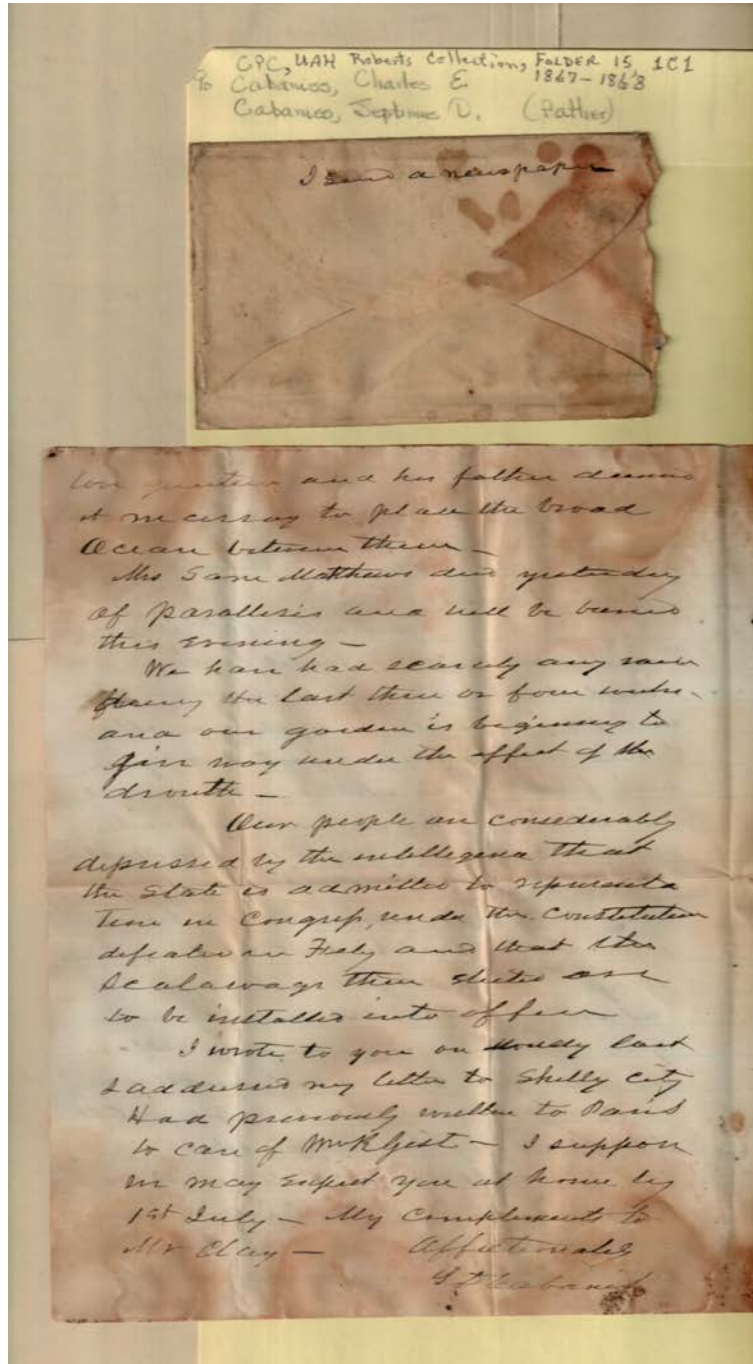 CPC, UAH Roberts Collection, FOLDER 15 1C1
% Cabaniss, Charles E. 1867-1868
Cabaniss, Septimus D. (Father)
I send a newspaper
love and his father deems
it necessary to place the broad
Ocean between them —
Mrs Sam Matthews died yesterday
of parallisis and will be buried
this evening —
We have had scarcely any rain
the last three or four weeks
and our garden is beginning to
give way under the effect of the
drouth —
Our people are considerably
depressed by the intelligence that
the State is admitted to representa
tion in Congress, under the Constitution
defeated in Feby and that the
Scalawags then elected are
to be installed into office
I wrote to you on last
& addressed my letter to Shelby City
Had previously written to Paris
to care of Gist — I suppose
we may expect you at home by
1st July — My compliments to
Mr Clay — Affectionately
S D Cabaniss